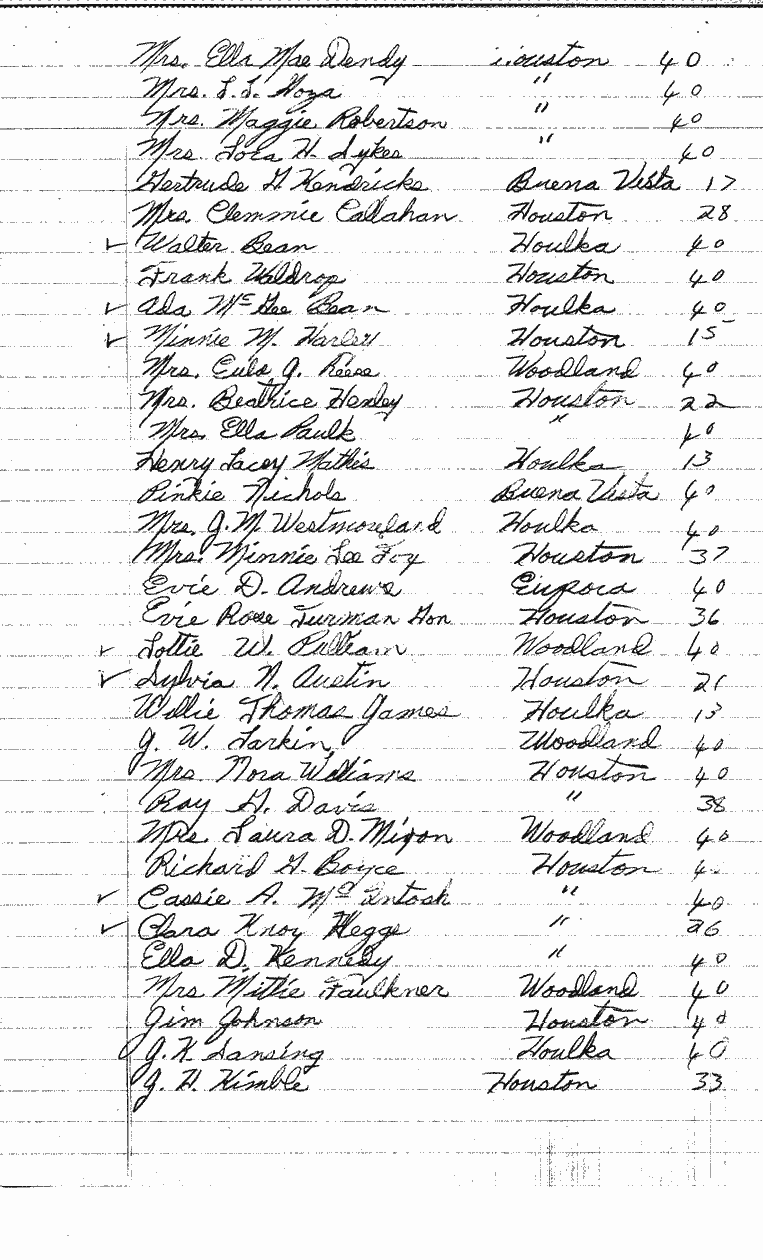 Mrs. Ella Mae Dendy Houston 40
Mrs. L.L. Hoza " 40
Mrs. Maggie Robertson " 40
Mrs. Lora H. Sykes " 40
Gertrude G. Kendricks Buena Vista 17
Mrs. Clemmie Callahan Houston 28
✓ Walter Bean Houlka 40
Frank Waldrop Houston 40
✓ Ada McGee Bean Houlka 40
✓ Minnie M. Harley Houston 15
Mrs. Eula G. Reese Woodland 40
Mrs. Beatrice Henley Houston 22
Mrs. Ella Paulk " 40
Henry Lacey Mathis Houlka 13
Pinkie Nichols Buena Vista 40
Mrs. J.M. Westmoreland Houlka 40
Mrs. Minnie Lee Foy Houston 37
Evie D. Andrews Eupora 40
Evie Rose Turman Hon Houston 36
✓ Lottie W. Pulliam Woodland 40
✓ Sylvia N. Austin Houston 21
Willie Thomas James Houlka 13
J. W. Larkin Woodland 40
Mrs. Nora Williams Houston 40
Ray G. Davis " 38
Mrs. Laura D. Mixon Woodland 40
Richard G. Boyce Houston
✓ Cassie A. McIntosh " 40
✓ Clara Knox Hegge " 26
Ella D. Kennedy " 40
Mrs Mittie Faulkner Woodland 40
Jim Johnson Houston 40
J. K Lansing Houlka 40
J. H. Kimble Houston 33